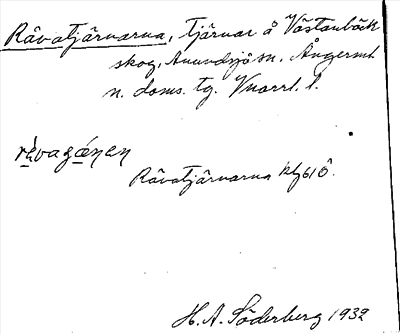 Råvatjärnarna, tjärnar å Västanbäck
skog, Anundsjö sn. Ångerml.
n. doms. tg. Vnorrl. l.
Råvatjärnarna kbl 61 Ö.
H. A. Söderberg 1932